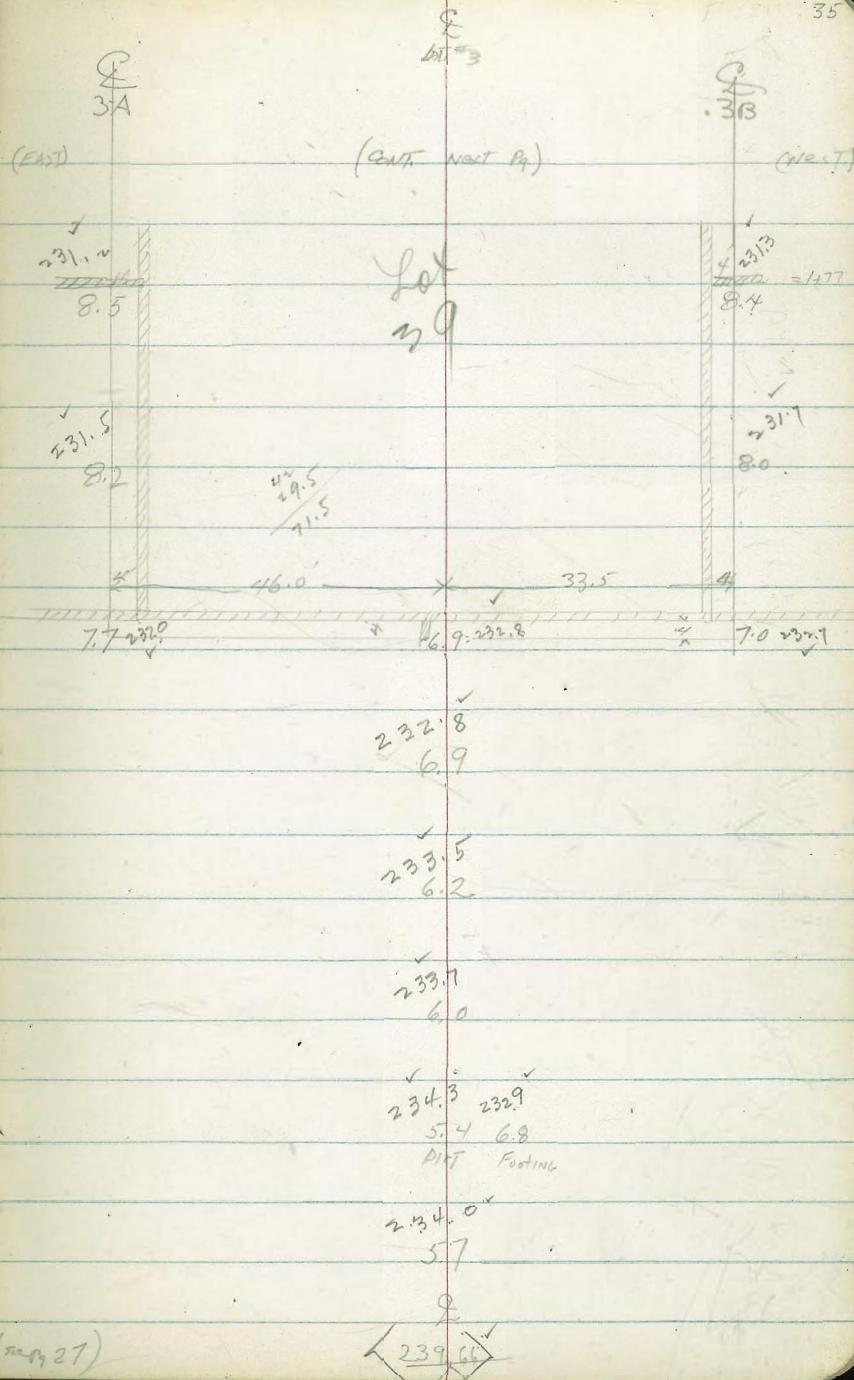 35
℄ ℄ ℄
3-A LOT #3 3B
(EAST) (CONT. NEXT Pg) (WEST)
231.2 231.3
Lot
8.5 4 8.4 =1+77
39
231.5 231.7
8.2 8.0
42
29.5
71.5
4 46.0 33.5 4
7.7 232.0 6.9=232.8 4 7.0 232.7
232.8
6.9
233.5
6.2
233.7
6.0
234.3 232.9
5.4 6.8
DIRT FOOTING
234.0
5.7
℄
(SEE Pg 27) 239.66